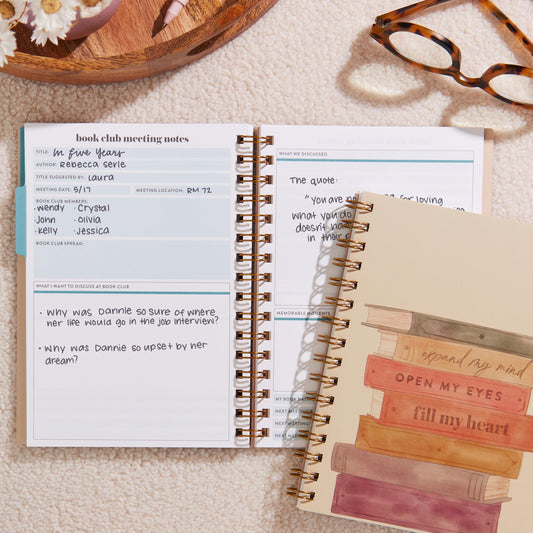 book club meeting notes
TITLE: In Five Years
AUTHOR: Rebecca Serle
TITLE SUGGESTED BY: Laura
MEETING DATE: 5/17 MEETING LOCATION: RM 72
BOOK CLUB MEMBERS:
·Wendy ·Crystal
·John ·Olivia
·Kelly ·Jessica
BOOK CLUB SPREAD:
WHAT I WANT TO DISCUSS AT BOOK CLUB
• Why was Dannie so sure of where
her life would go in the job interview?
• Why was Dannie so upset by her
dream?
WHAT WE DISCUSSED
The quote:
"You are for loving
what you
doesn't
in their
MEMORABLE MOMENTS
MY BOOK
NEXT MEE
NEXT MEETING
NEXT MEE
expand my mind
OPEN MY EYES
fill my heart